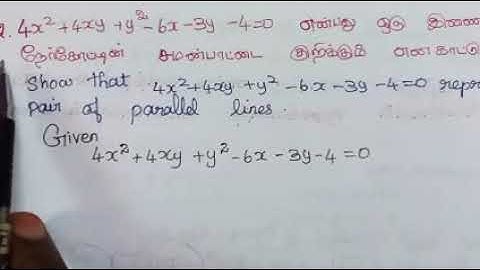 2. 4x² + 4xy + y² - 6x - 3y - 4 = 0 என்பது ஒரு இணை
நேர்கோட்டின் சமன்பாட்டை குறிக்கும் எனகாட்டு
Show that 4x² + 4xy + y² - 6x - 3y - 4 = 0 repr
pair of parallel lines.
Given
4x² + 4xy + y² - 6x - 3y - 4 = 0